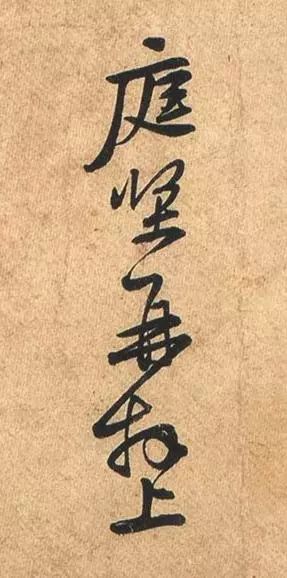 庭坚再拜上